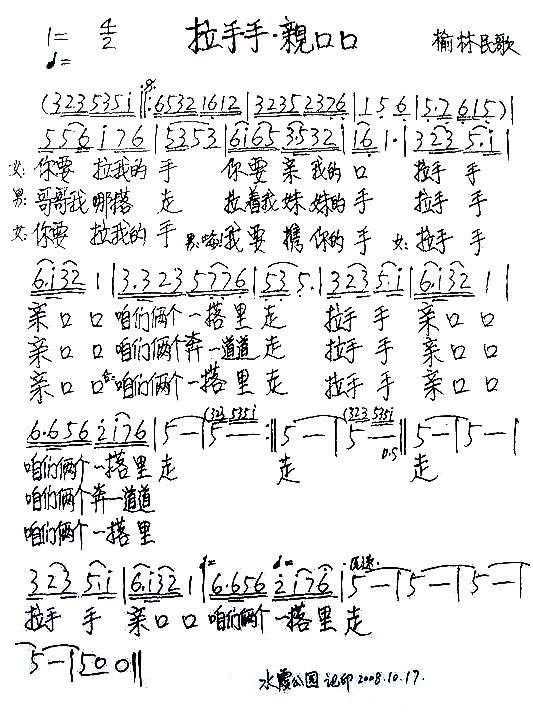 1= 4/2 拉手手·親口口 榆林民歌
♩=
(323535i ‖: 65321612 | 32352376 | 1 5 6 | 5·7 615) |
556 i76 | 5353 | 6i65 3532 | i6 1· | 323 5·i |
女: 你要 拉我的 手 你要 亲 我的 口 拉手 手
男: 哥哥我 哪搭 走 拉着我 妹妹的 手 拉手 手
女: 你要 拉我的 手 男: 我要 携 你的 手 女: 拉手 手
6·i32 1 | 3·323 5776 | 53 5· | 323 5·i | 6·i32 1 |
亲口 口 咱们俩个 一搭里 走 拉手 手 亲口 口
亲口 口 咱们俩个奔一道道 走 拉手 手 亲口 口
亲口 口 合: 咱们俩个 一搭里 走 拉手 手 亲口 口
6·656 2i76 | 5 — | 5 — (323 535i) :‖ 5 — | 5 — (323 535i) ‖ 5 — | 5 — |
D.S
咱们俩个 一搭里 走 走 走
咱们俩个奔一道道
咱们俩个 一搭里
323 5·i | 6·i32 1 | 6·656 2i76 | 5 — | 5 — | 5 — |
拉手 手 亲口 口 咱们俩个 一搭里 走
5 — | 500 ‖
水霞公园 记印 2008.10.17.